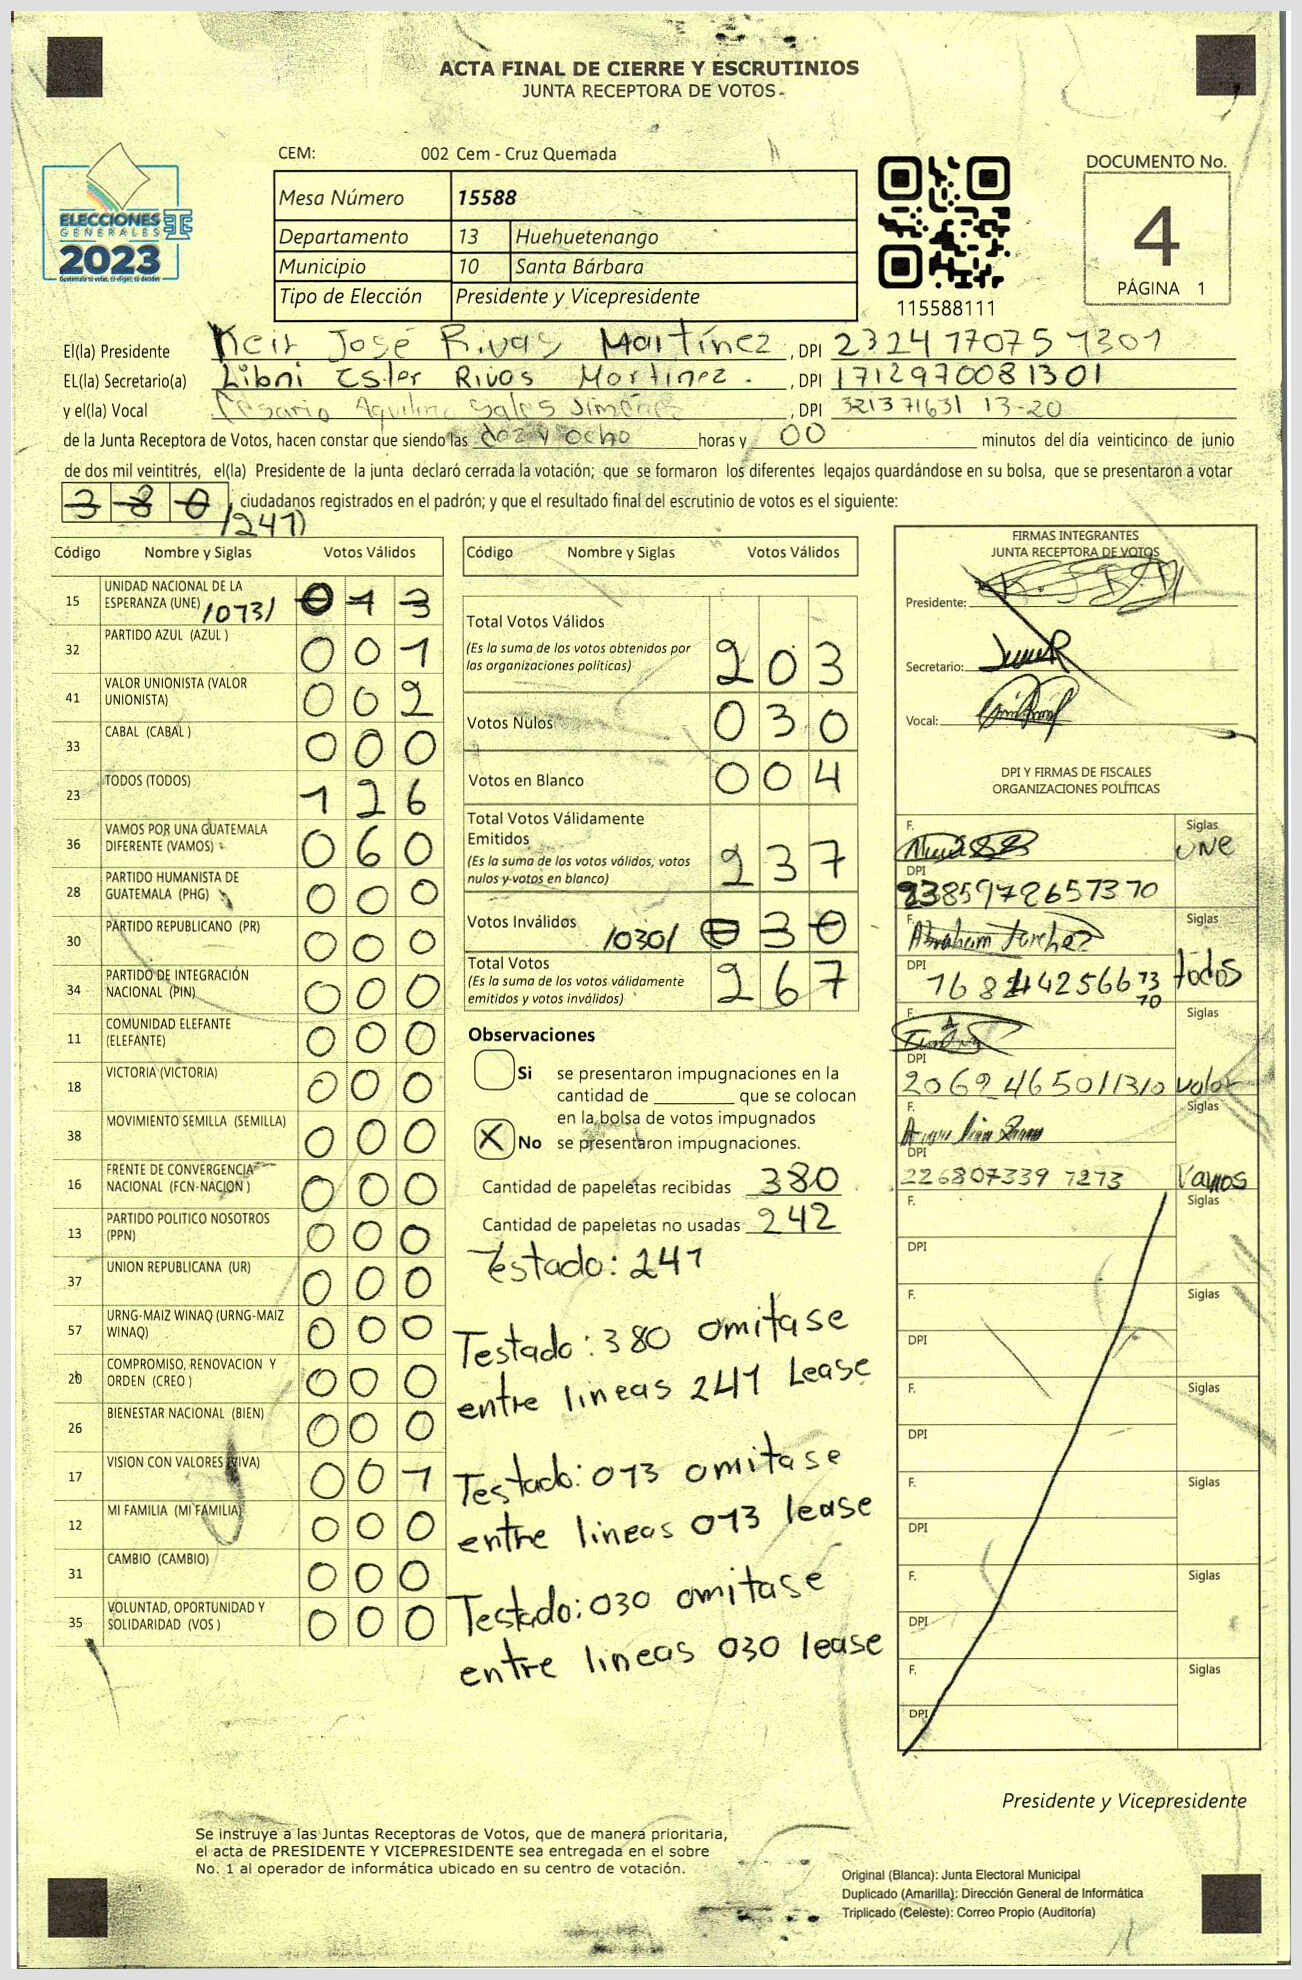 ACTA FINAL DE CIERRE Y ESCRUTINIOS
JUNTA RECEPTORA DE VOTOS
CEM: 002 Cem - Cruz Quemada
ELECCIONES
GENERALES
2023
Mesa Número 15588
Departamento 13 Huehuetenango
Municipio 10 Santa Bárbara
Tipo de Elección Presidente y Vicepresidente
115588111
DOCUMENTO No.
4
PÁGINA 1
El(la) Presidente Keir José Rivas Martínez, DPI
EL(la) Secretario(a) Libni Ester Rivas Martinez. , DPI 1712970081301
y el(la) Vocal Cesario Aquilino Sales Jiménez, DPI 321371631 13-20
de la Junta Receptora de Votos, hacen constar que siendo las doz y ocho horas y 00 minutos del día veinticinco de junio
de dos mil veintitrés, el(la) Presidente de la junta declaró cerrada la votación; que se formaron los diferentes legajos guardándose en su bolsa, que se presentaron a votar
380 ciudadanos registrados en el padrón; y que el resultado final del escrutinio de votos es el siguiente:
/241)
Código Nombre y Siglas Votos Válidos
15 UNIDAD NACIONAL DE LA
ESPERANZA (UNE) /073/ 0 1 3
32 PARTIDO AZUL (AZUL ) 0 0 1
41 VALOR UNIONISTA (VALOR
UNIONISTA) 0 0 2
33 CABAL (CABAL ) 0 0 0
23 TODOS (TODOS) 1 2 6
36 VAMOS POR UNA GUATEMALA
DIFERENTE (VAMOS) 0 6 0
28 PARTIDO HUMANISTA DE
GUATEMALA (PHG) 0 0 0
30 PARTIDO REPUBLICANO (PR) 0 0 0
34 PARTIDO DE INTEGRACIÓN
NACIONAL (PIN) 0 0 0
11 COMUNIDAD ELEFANTE
(ELEFANTE) 0 0 0
18 VICTORIA (VICTORIA) 0 0 0
38 MOVIMIENTO SEMILLA (SEMILLA) 0 0 0
16 FRENTE DE CONVERGENCIA
NACIONAL (FCN-NACION ) 0 0 0
13 PARTIDO POLITICO NOSOTROS
(PPN) 0 0 0
37 UNION REPUBLICANA (UR) 0 0 0
57 URNG-MAIZ WINAQ (URNG-MAIZ
WINAQ) 0 0 0
20 COMPROMISO, RENOVACION Y
ORDEN (CREO ) 0 0 0
26 BIENESTAR NACIONAL (BIEN) 0 0 0
17 VISION CON VALORES (VIVA) 0 0 1
12 MI FAMILIA (MI FAMILIA) 0 0 0
31 CAMBIO (CAMBIO) 0 0 0
35 VOLUNTAD, OPORTUNIDAD Y
SOLIDARIDAD (VOS ) 0 0 0
Código Nombre y Siglas Votos Válidos
Total Votos Válidos
(Es la suma de los votos obtenidos por
las organizaciones políticas) 2 0 3
Votos Nulos 0 3 0
Votos en Blanco 0 0 4
Total Votos Válidamente
Emitidos
(Es la suma de los votos válidos, votos
nulos y votos en blanco) 2 3 7
Votos Inválidos /030/ 0 3 0
Total Votos
(Es la suma de los votos válidamente
emitidos y votos inválidos) 2 6 7
Observaciones
Si se presentaron impugnaciones en la
cantidad de ________ que se colocan
en la bolsa de votos impugnados
X No se presentaron impugnaciones.
Cantidad de papeletas recibidas 380
Cantidad de papeletas no usadas 242
Testado: 241
Testado: 380 omitase
entre lineas 241 Lease
Testado: 013 omitase
entre lineas 013 lease
Testado: 030 omitase
entre lineas 030 lease
FIRMAS INTEGRANTES
JUNTA RECEPTORA DE VOTOS
Presidente:
Secretario:
Vocal:
DPI Y FIRMAS DE FISCALES
ORGANIZACIONES POLÍTICAS
F. Siglas
UNE
DPI
F. Abraham Siglas
DPI
todos
F. Siglas
DPI
valor
F. Siglas
DPI
226807339 1273 Vamos
F. Siglas
DPI
F. Siglas
DPI
F. Siglas
DPI
F. Siglas
DPI
F. Siglas
DPI
F. Siglas
DPI
Presidente y Vicepresidente
Se instruye a las Juntas Receptoras de Votos, que de manera prioritaria,
el acta de PRESIDENTE Y VICEPRESIDENTE sea entregada en el sobre
No. 1 al operador de informática ubicado en su centro de votación.
Original (Blanca): Junta Electoral Municipal
Duplicado (Amarilla): Dirección General de Informática
Triplicado (Celeste): Correo Propio (Auditoría)